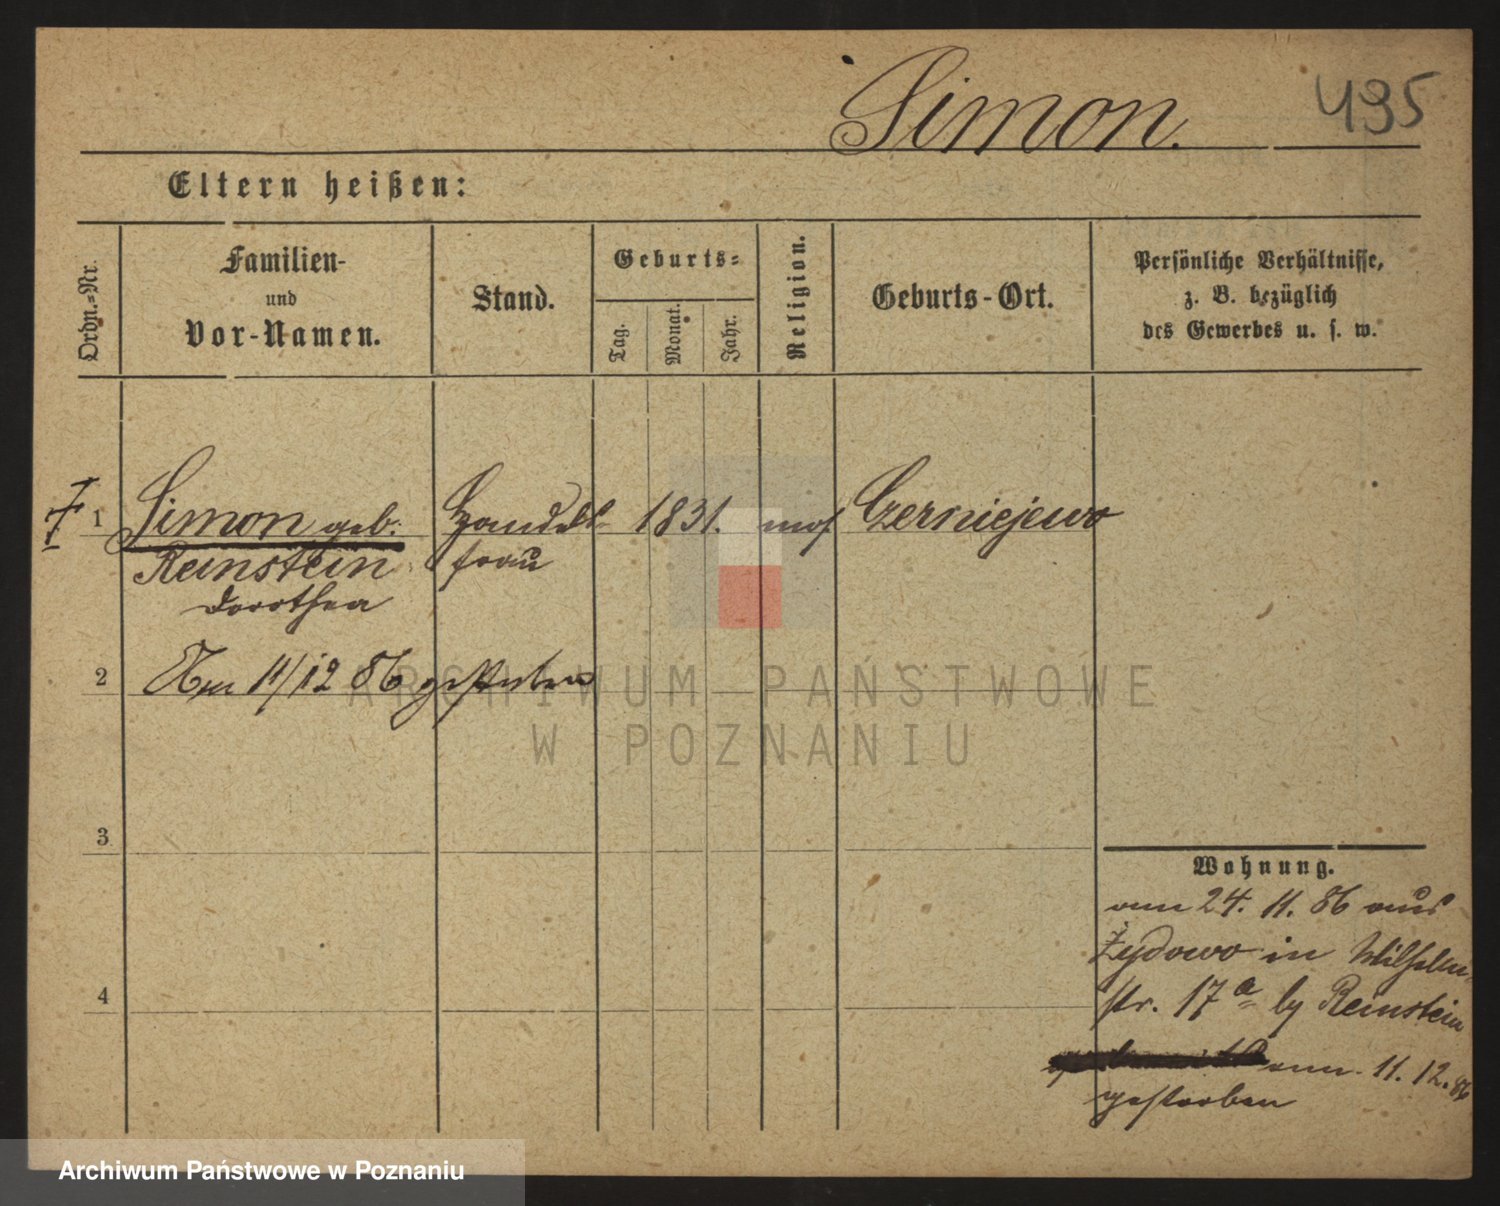 Simon. 495
Eltern heißen:
Ordn.-Nr.
Familien-
und
Vor-Namen.
Stand.
Geburts-
Tag.
Monat.
Jahr.
Religion.
Geburts-Ort.
Persönliche Verhältnisse,
z. B. bezüglich
des Gewerbes u. s. w.
1 Simon geb. Handels- 1831. mos. Czerniejewo
Reinstein frau
Dorothea
2 Am 11/12 86 gestorben
3
4
Wohnung.
am 24. 11. 86 aus
Żydowo in Wilhelm-
str. 17 a by Reinstein
am 11. 12. 86
gestorben
ARCHIWUM PAŃSTWOWE
W POZNANIU
Archiwum Państwowe w Poznaniu